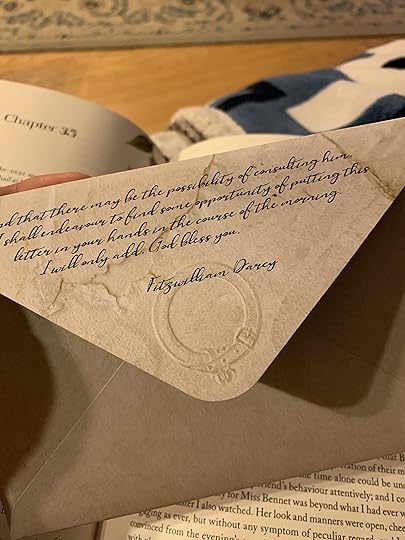 Chapter 35
the next
had
that there may be the possibility of consulting him,
I shall endeavour to find some opportunity of putting this
letter in your hands in the course of the morning.
I will only add, God bless you.
Fitzwilliam Darcy
that B
of their m
the time alone could be
friend's behaviour attentively; and I co
for Miss Bennet was beyond what I had ever w
I also watched. Her look and manners were open, chee
engaging as ever, but without any symptom of peculiar regard,
convinced from the evening's
with